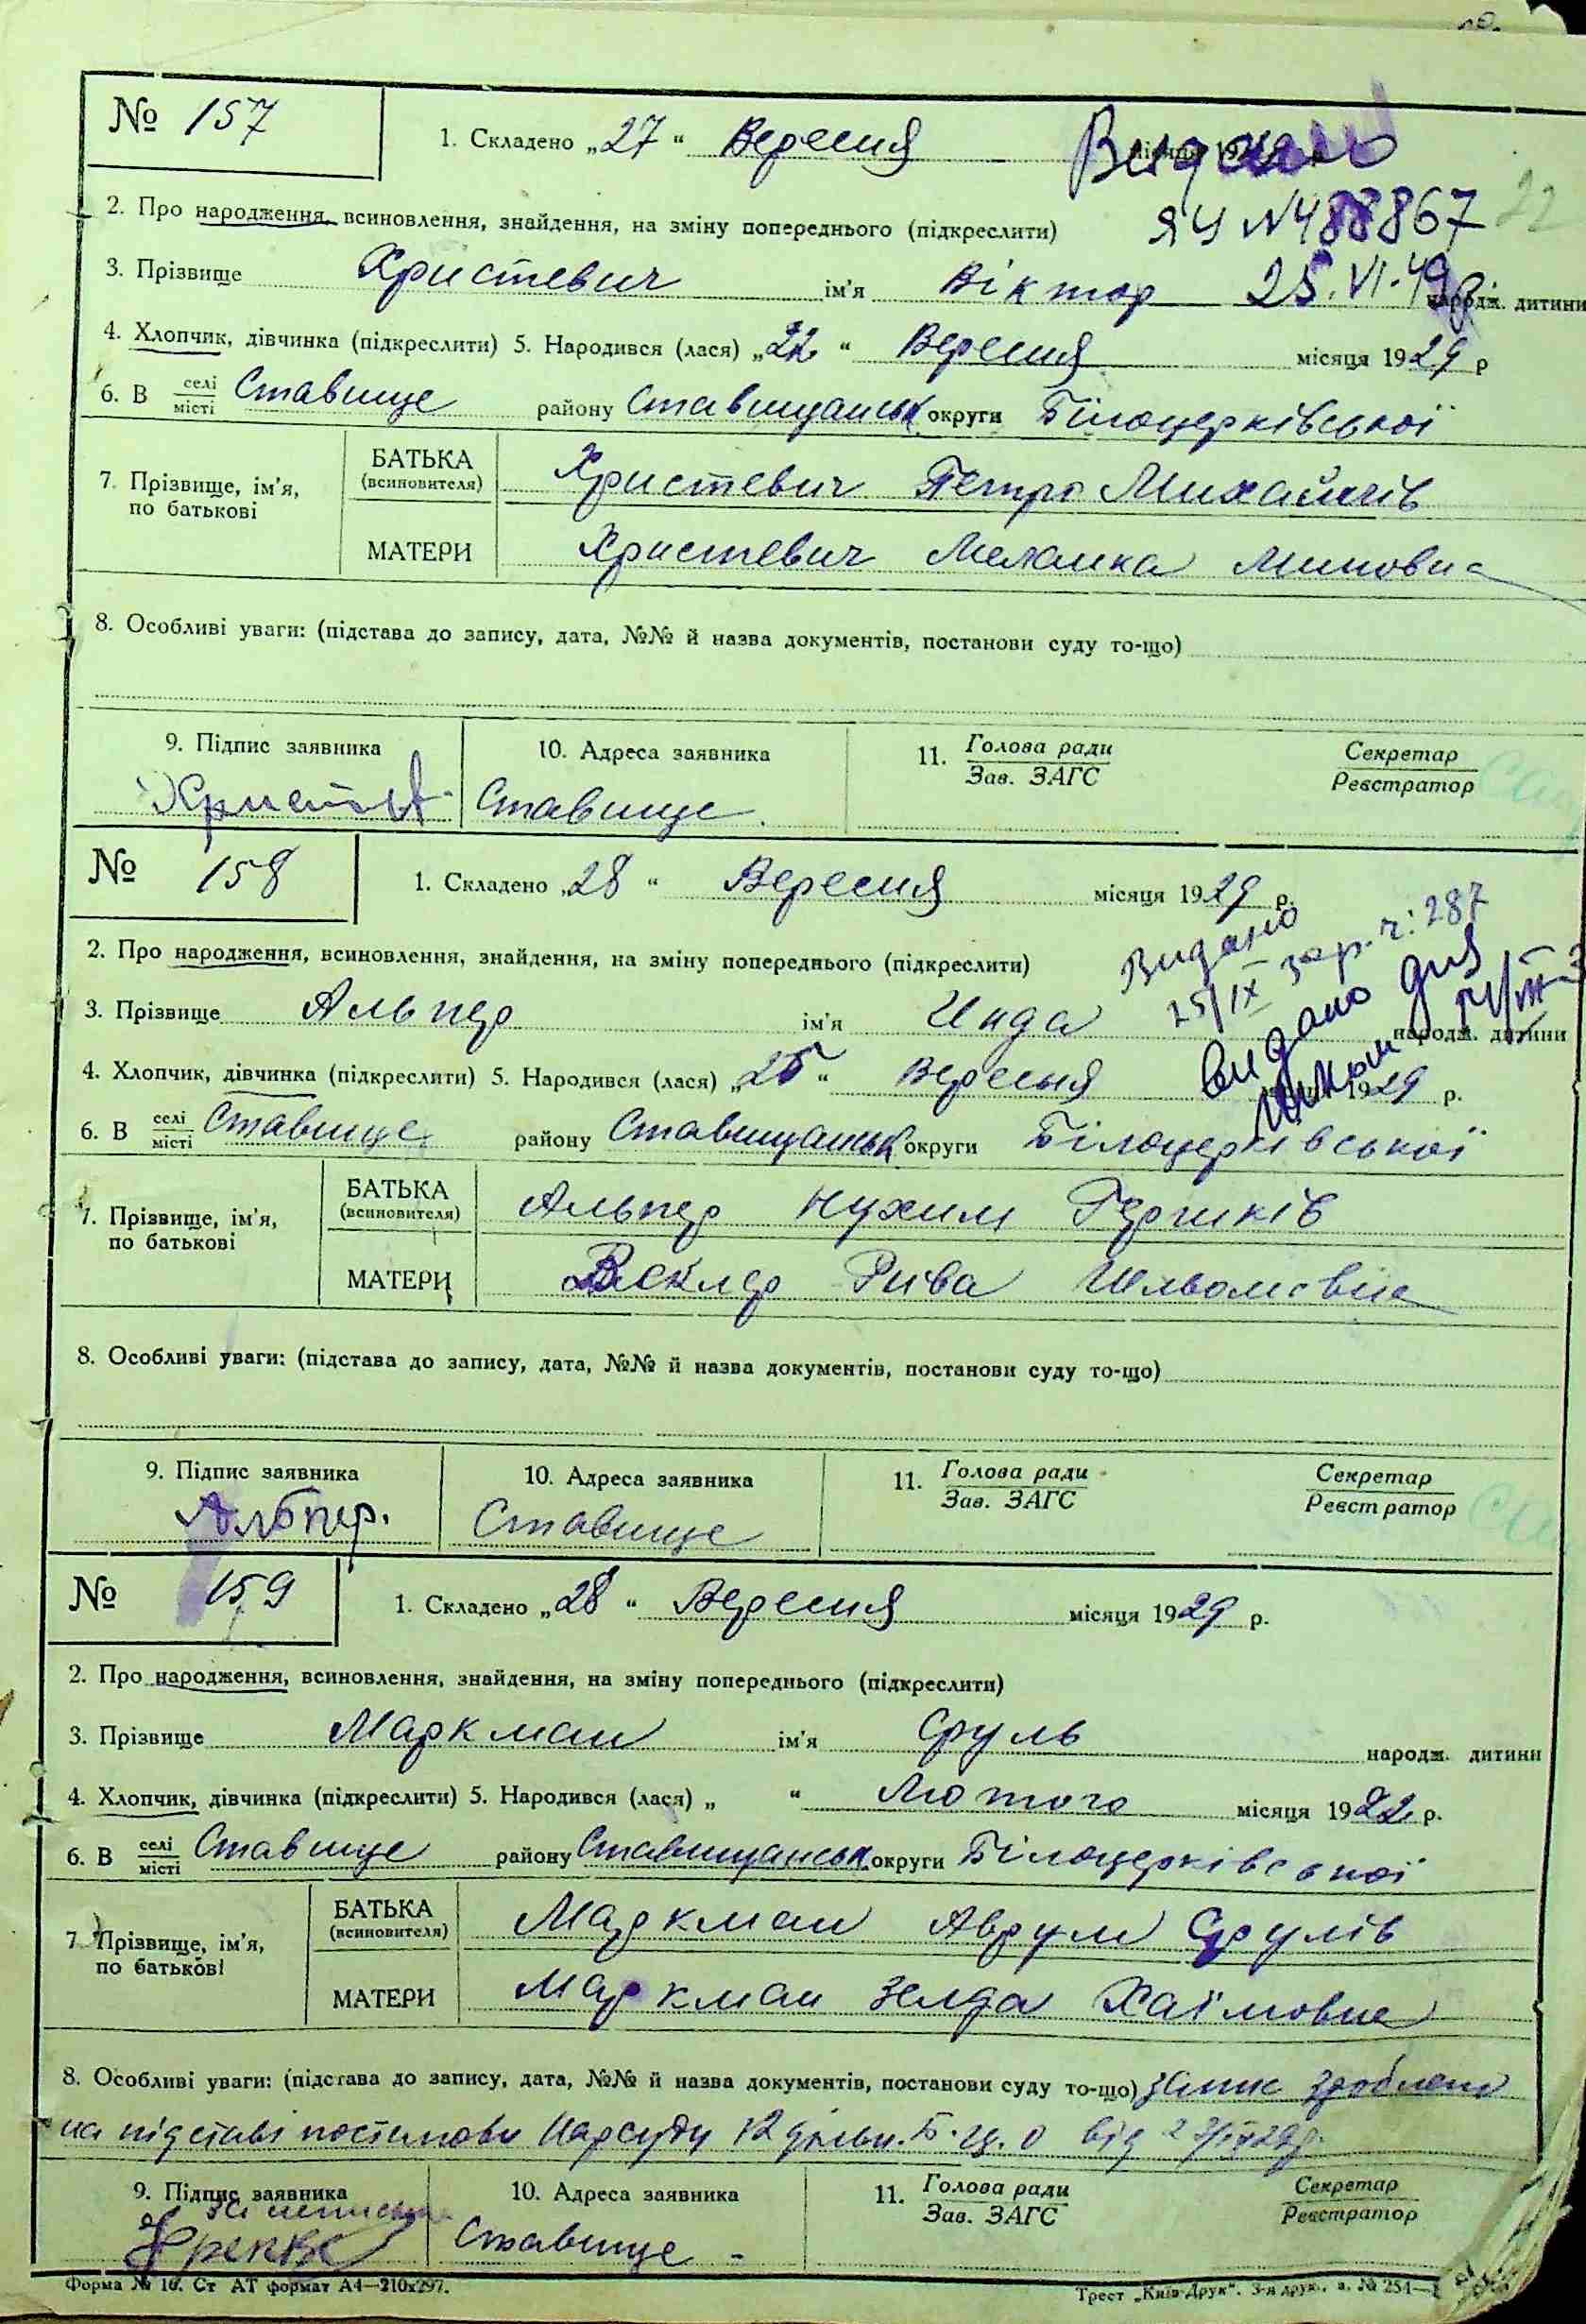 № 157
1. Складено „27“ Вересня
Видано
2. Про народження, всиновлення, знайдення, на зміну попереднього (підкреслити)
ЯЧ №488867
22
3. Прізвище Христевич ім'я Віктор народж. дитини
25.VI.49р.
4. Хлопчик, дівчинка (підкреслити) 5. Народився (лася) „22“ Вересня місяця 1929 р
6. В селі/місті Ставище району Ставищанськ округи Білоцерківської
7. Прізвище, ім'я, по батькові
БАТЬКА (всиновителя) Христевич Петро Михайлів
МАТЕРИ Христевич Меланка Миновна
8. Особливі уваги: (підстава до запису, дата, №№ й назва документів, постанови суду то-що)
9. Підпис заявника
10. Адреса заявника
11. Голова ради / Зав. ЗАГС
Секретар / Реєстратор
Ставище.
№ 158
1. Складено „28“ Вересня місяця 1929 р.
Видано
25/IX зар. ч: 287
2. Про народження, всиновлення, знайдення, на зміну попереднього (підкреслити)
видано для
3. Прізвище Альпер ім'я Инда народж. дитини
4. Хлопчик, дівчинка (підкреслити) 5. Народився (лася) „25“ Вересня 1929 р.
6. В селі/місті Ставище району Ставищанськ округи Білоцерківської
7. Прізвище, ім'я, по батькові
БАТЬКА (всиновителя) Альпер Нухим Гершків
МАТЕРИ Векслер Рива
8. Особливі уваги: (підстава до запису, дата, №№ й назва документів, постанови суду то-що)
9. Підпис заявника
10. Адреса заявника
11. Голова ради / Зав. ЗАГС
Секретар / Реєстратор
Альпер.
Ставище
№ 159
1. Складено „28“ Вересня місяця 1929 р.
2. Про народження, всиновлення, знайдення, на зміну попереднього (підкреслити)
3. Прізвище Маркман ім'я Сруль народж. дитини
4. Хлопчик, дівчинка (підкреслити) 5. Народився (лася) „ “ Лютого місяця 1922 р.
6. В селі/місті Ставище району Ставищанськ округи Білоцерківської
7. Прізвище, ім'я, по батькові
БАТЬКА (всиновителя) Маркман Аврум Срулів
МАТЕРИ Маркман Зелда Хаїмовна
8. Особливі уваги: (підстава до запису, дата, №№ й назва документів, постанови суду то-що) запис зроблено
на підставі постанови Нарсуду 12 дільн. Б. Ц. О від
9. Підпис заявника
10. Адреса заявника
11. Голова ради / Зав. ЗАГС
Секретар / Реєстратор
Ставище
Форма № 16. Ст АТ формат А4—210х297.
Трест „Київ-Друк“. 3-я друк., з. № 254—